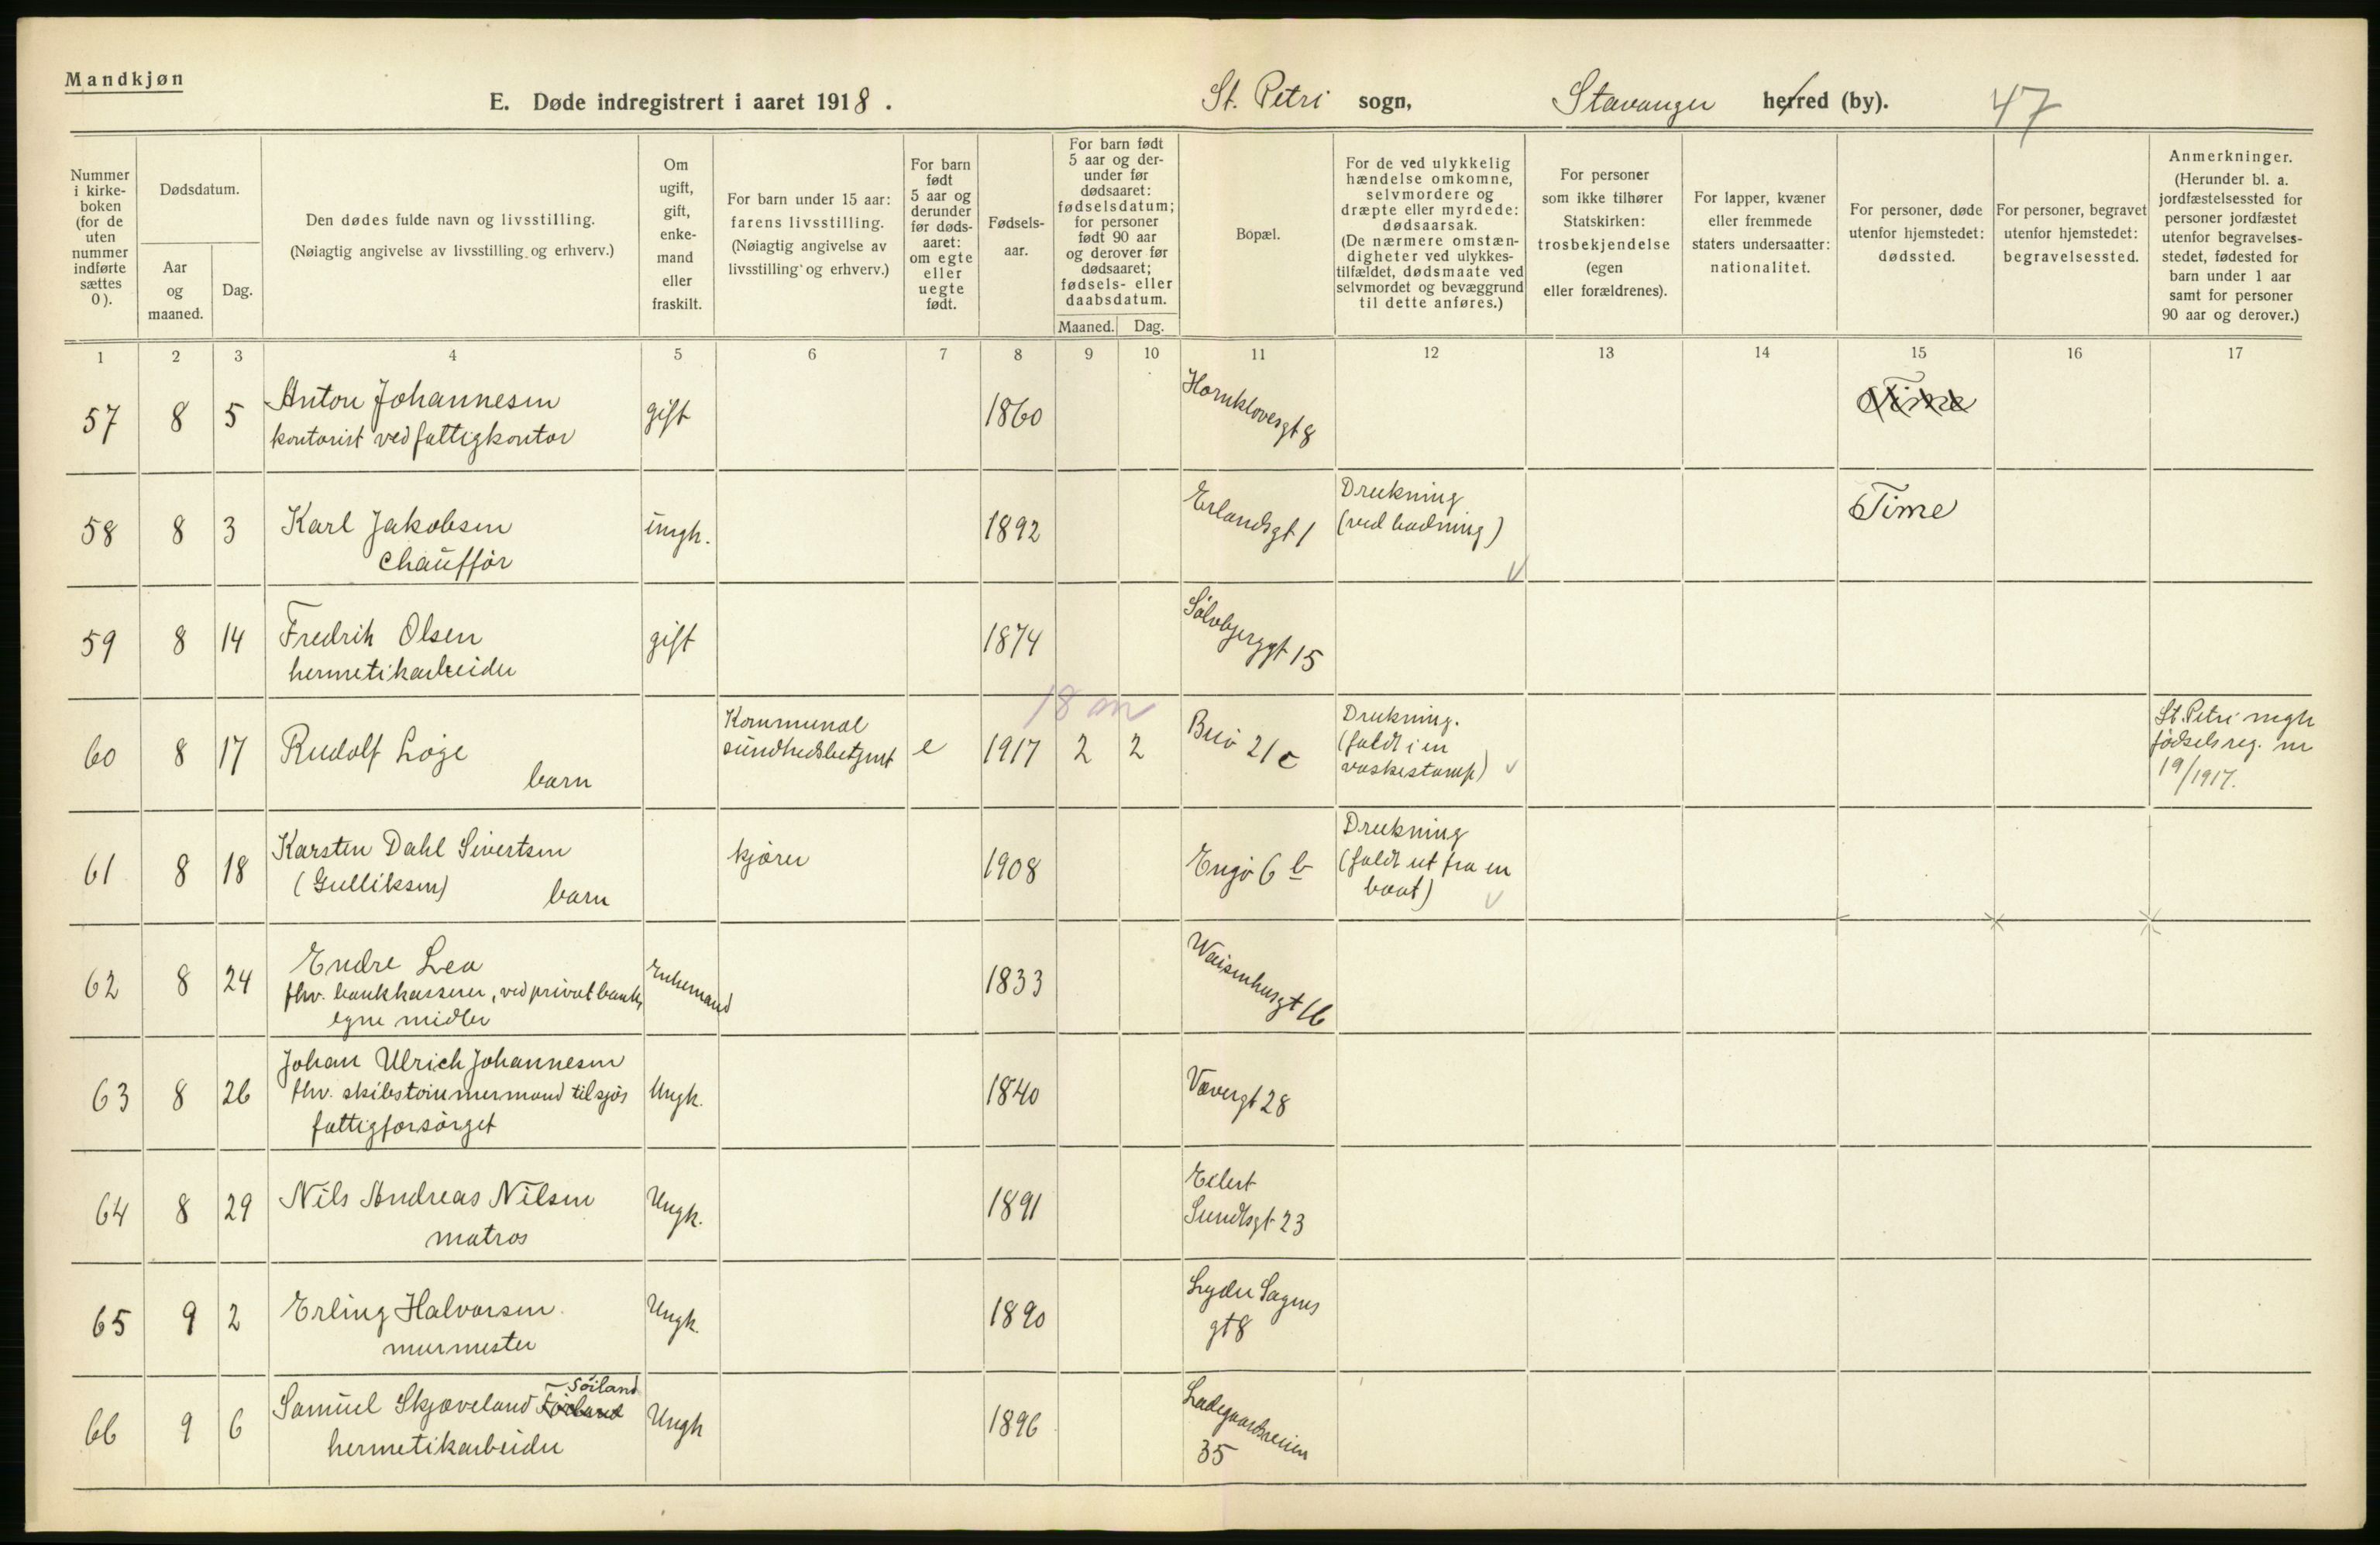 Mandkjøn
E. Døde indregistrert i aaret 1918.
St. Petri sogn, Stavanger herred (by). 47
Nummer i kirke-boken (for de uten nummer indførte sættes 0).
Dødsdatum.
Aar og maaned.
Dag.
Den dødes fulde navn og livsstilling.
(Nøiagtig angivelse av livsstilling og erhverv.)
Om ugift, gift, enke-mand eller fraskilt.
For barn under 15 aar: farens livsstilling. (Nøiagtig angivelse av livsstilling og erhverv.)
For barn født 5 aar og derunder før døds-aaret: om egte eller uegte født.
Fødsels-aar.
For barn født 5 aar og der-under før dødsaaret: fødselsdatum; for personer født 90 aar og derover før dødsaaret; fødsels- eller daabsdatum.
Maaned. Dag.
Bopæl.
For de ved ulykkelig hændelse omkomne, selvmordere og dræpte eller myrdede: dødsaarsak. (De nærmere omstæn-digheter ved ulykkes-tilfældet, dødsmaate ved selvmordet og bevæggrund til dette anføres.)
For personer som ikke tilhører Statskirken: trosbekjendelse (egen eller forældrenes).
For lapper, kvæner eller fremmede staters undersaatter: nationalitet.
For personer, døde utenfor hjemstedet: dødssted.
For personer, begravet utenfor hjemstedet: begravelsessted.
Anmerkninger. (Herunder bl. a. jordfæstelsessted for personer jordfæstet utenfor begravelses-stedet, fødested for barn under 1 aar samt for personer 90 aar og derover.)
1 2 3 4 5 6 7 8 9 10 11 12 13 14 15 16 17
57 8 5 Anton Johannesen gift 1860 Hornklovesgt 8 Time
kontorist ved fattigkontor
58 8 3 Karl Jakobsen ungk. 1892 Erlandsgt 1 Drukning Time
chauffør (ved badning)
59 8 14 Fredrik Olsen gift 1874 Sølvbjerggt 15
hermetikarbeider
18 m
60 8 17 Rudolf Løge Kommunal e 1917 2 2 Buø 21 c Drukning. St. Petri mgh
barn sundhedsbetjent (faldt i en fødselsreg. nr
vaskestamp) 19/1917.
61 8 18 Karsten Dahl Sivertsen kjører 1908 Engø 6 b Drukning
(Gulliksen) barn (faldt ut fra en
baat)
62 8 24 Endre Lea Enkemand 1833 Waisenhusgt 16
fhv. bankkasserer, ved privat bank,
egne midler
63 8 26 Johan Ulrich Johannesen Ungk. 1840 Vævergt 28
fhv. skibstømmermand tilsjøs
fattigforsørget
64 8 29 Nils Andreas Nilsen Ungk. 1891 Eilert
matros Sundtsgt 23
65 9 2 Erling Halvorsen Ungk. 1890 Lyder Sagens
murmester gt 8
66 9 6 Samuel Skjæveland Søiland Ungk 1896 Ladegaardsveien
hermetikarbeider 35